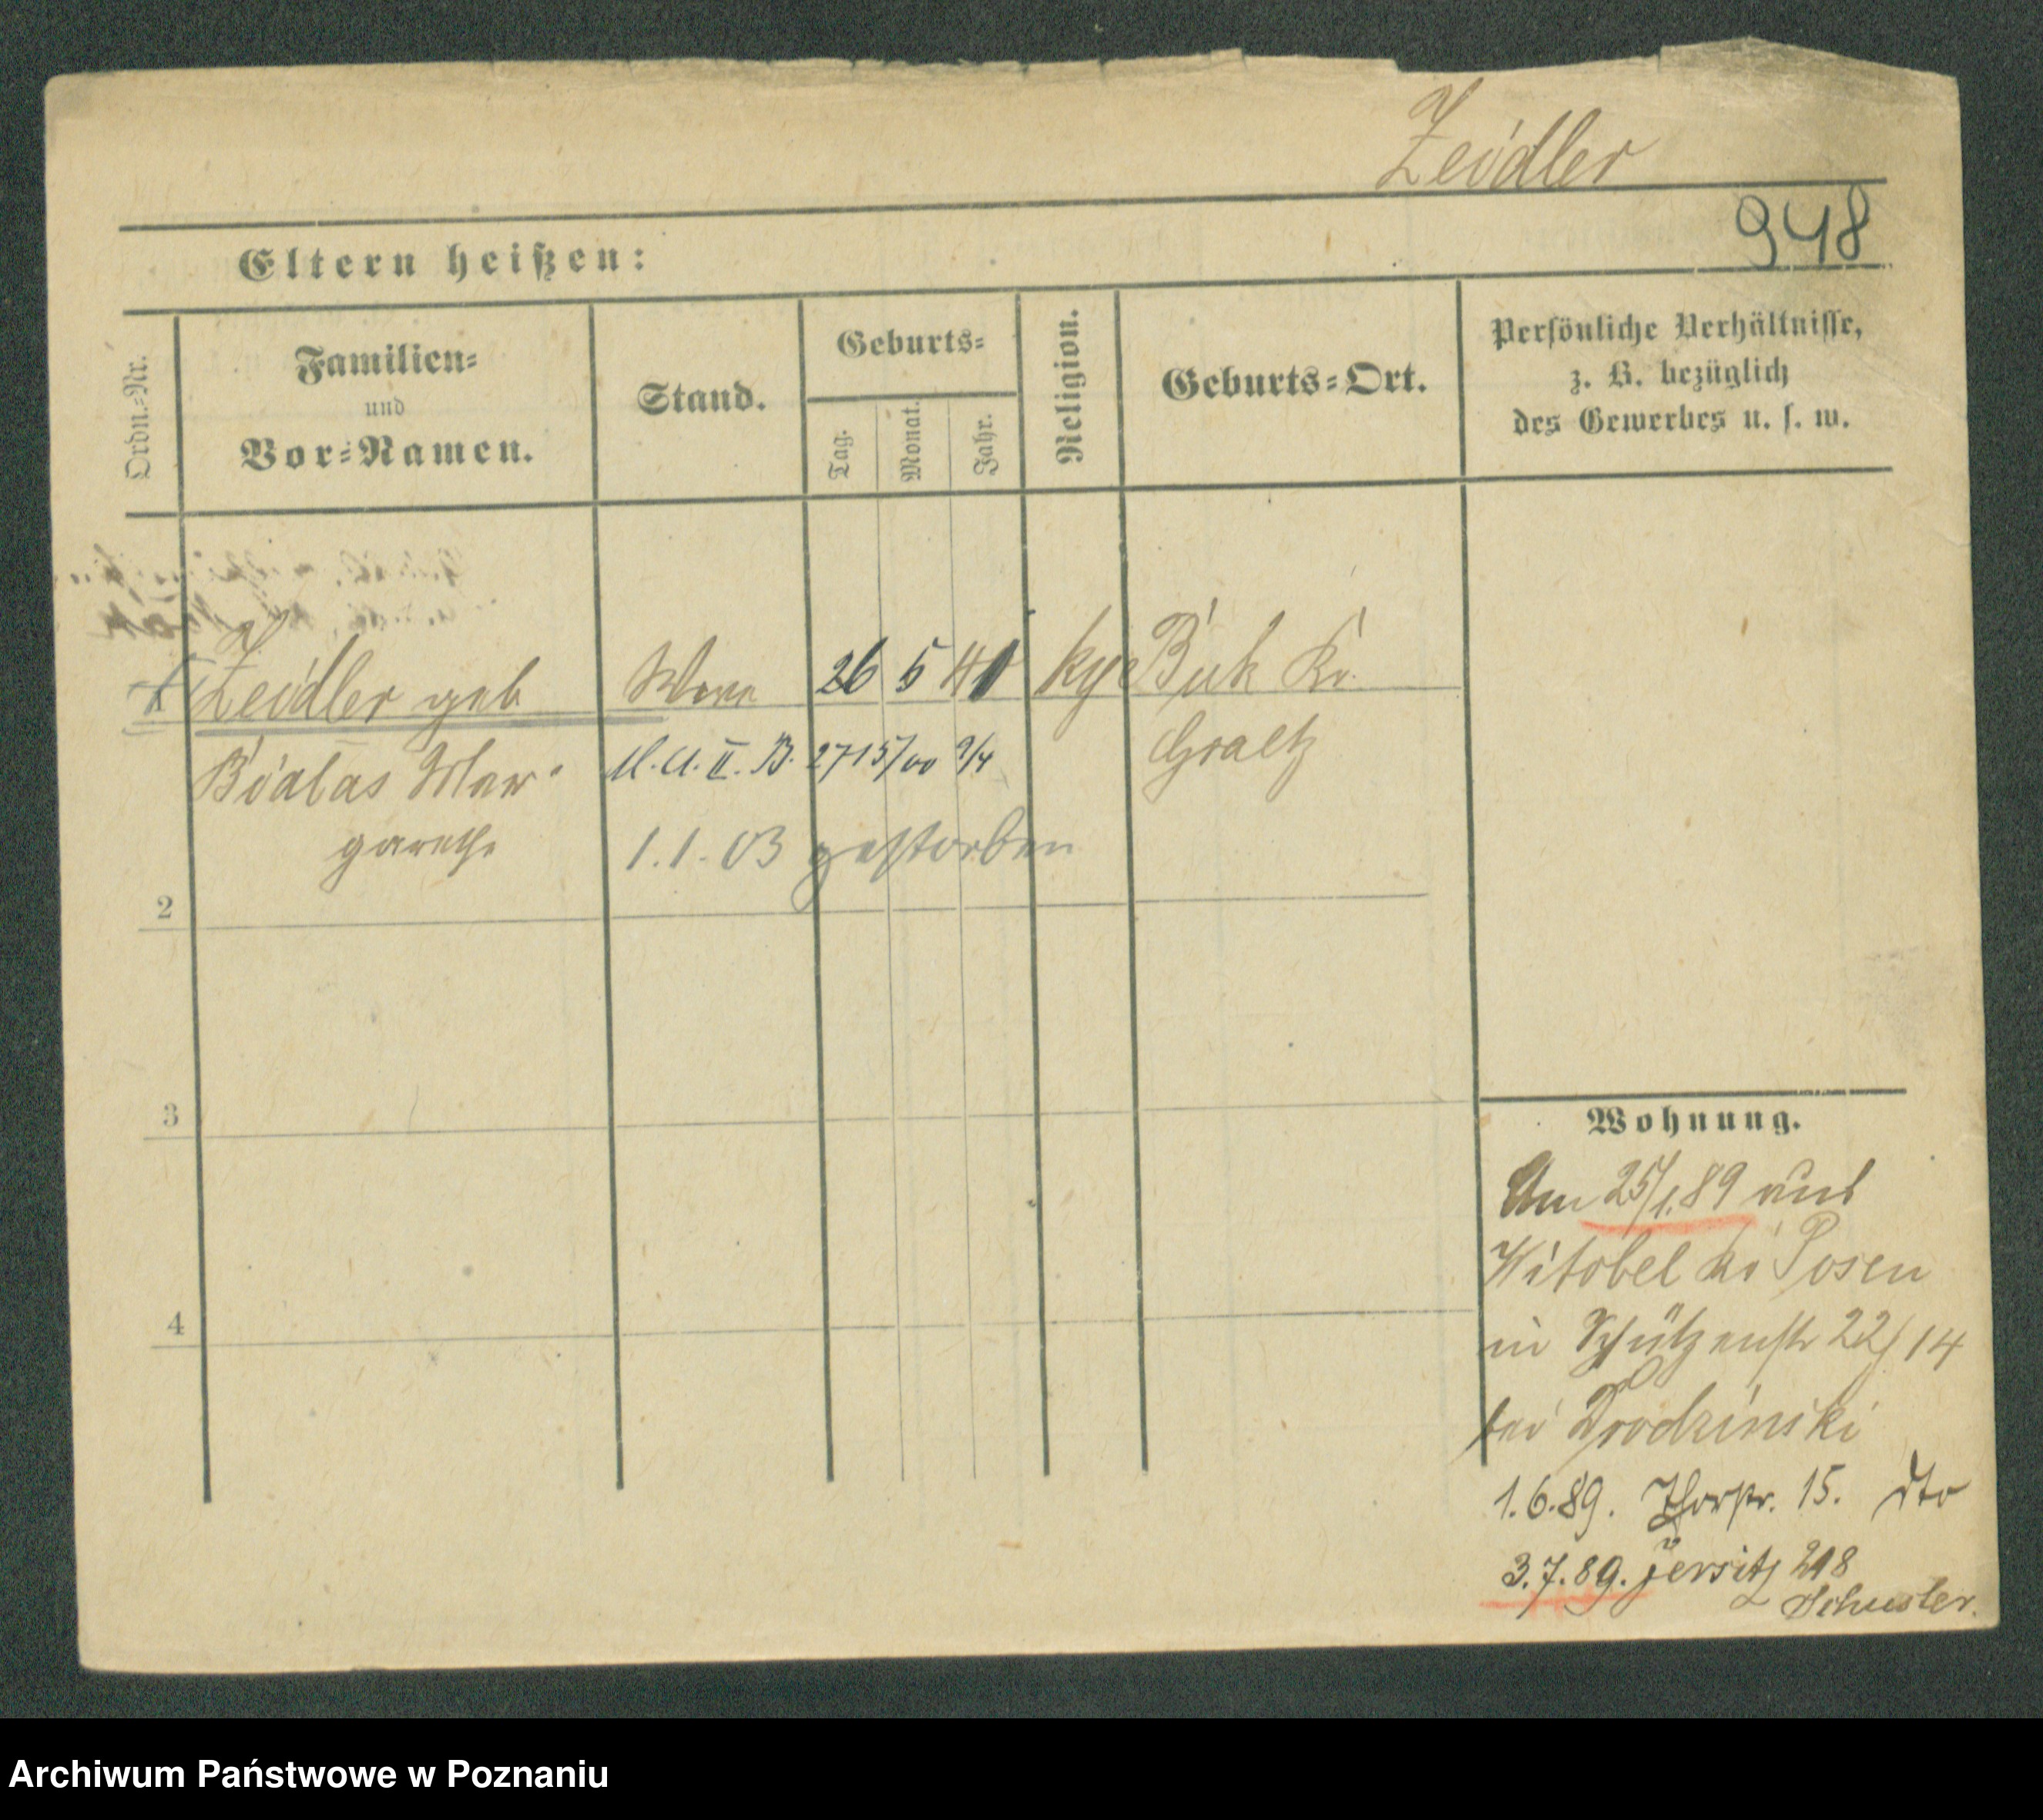 Zeidler
948
Eltern heißen:
Ordn.-Nr.
Familien-
und
Vor-Namen.
Stand.
Geburts-
Tag.
Monat.
Jahr.
Religion.
Geburts-Ort.
Persönliche Verhältnisse,
z. B. bezüglich
des Gewerbes u. s. w.
Zeidler geb
26 5 Buk Kr.
Graetz
Bialas Mar-
garethe
M. A. II. B. 2715/00 9/4
1.1.03 gestorben
2
3
4
Wohnung.
Am 25/1.89 aus
Witobel Kr Posen
in Schützenstr 22/14
bei Drodzinski
1.6.89. Thorstr. 15. dto
3.7.89. Jersitz 218
Schuster.
Archiwum Państwowe w Poznaniu